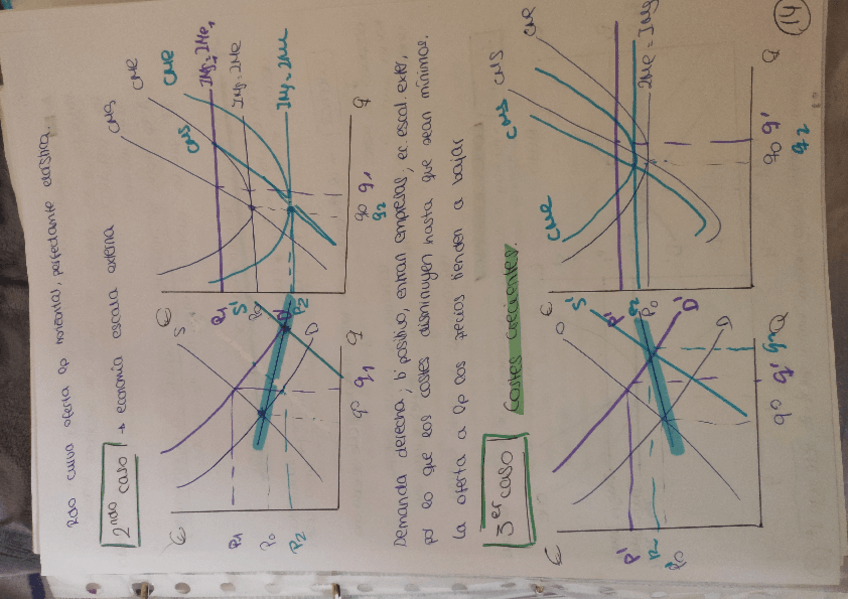 14
2do curva oferta lp horizontal, perfectamente elástica.
2ndo caso → economía escala externa
€
P1
P0
P2
S
S'
D'
D
q0 q1
q
€
P1
P0
P2
CMg
CMe
CMg
CMe
IMg1=IMe1
IMg=IMe
IMg=IMe
q0 q1
q2
q
Demanda derecha, bº positivo, entran empresas, ec. escal. exter,
por lo que los costes disminuyen hasta que sean mínimos.
La oferta a lp los precios tienden a bajar
3er caso Costes crecientes.
€
P'
P2
P0
O
S'
D'
D
q0 q1 q2
Q
€
P'
P2
P0
CMe
CMg
CMg
CMe
IMe=IMg
q0 q1
q2
Q